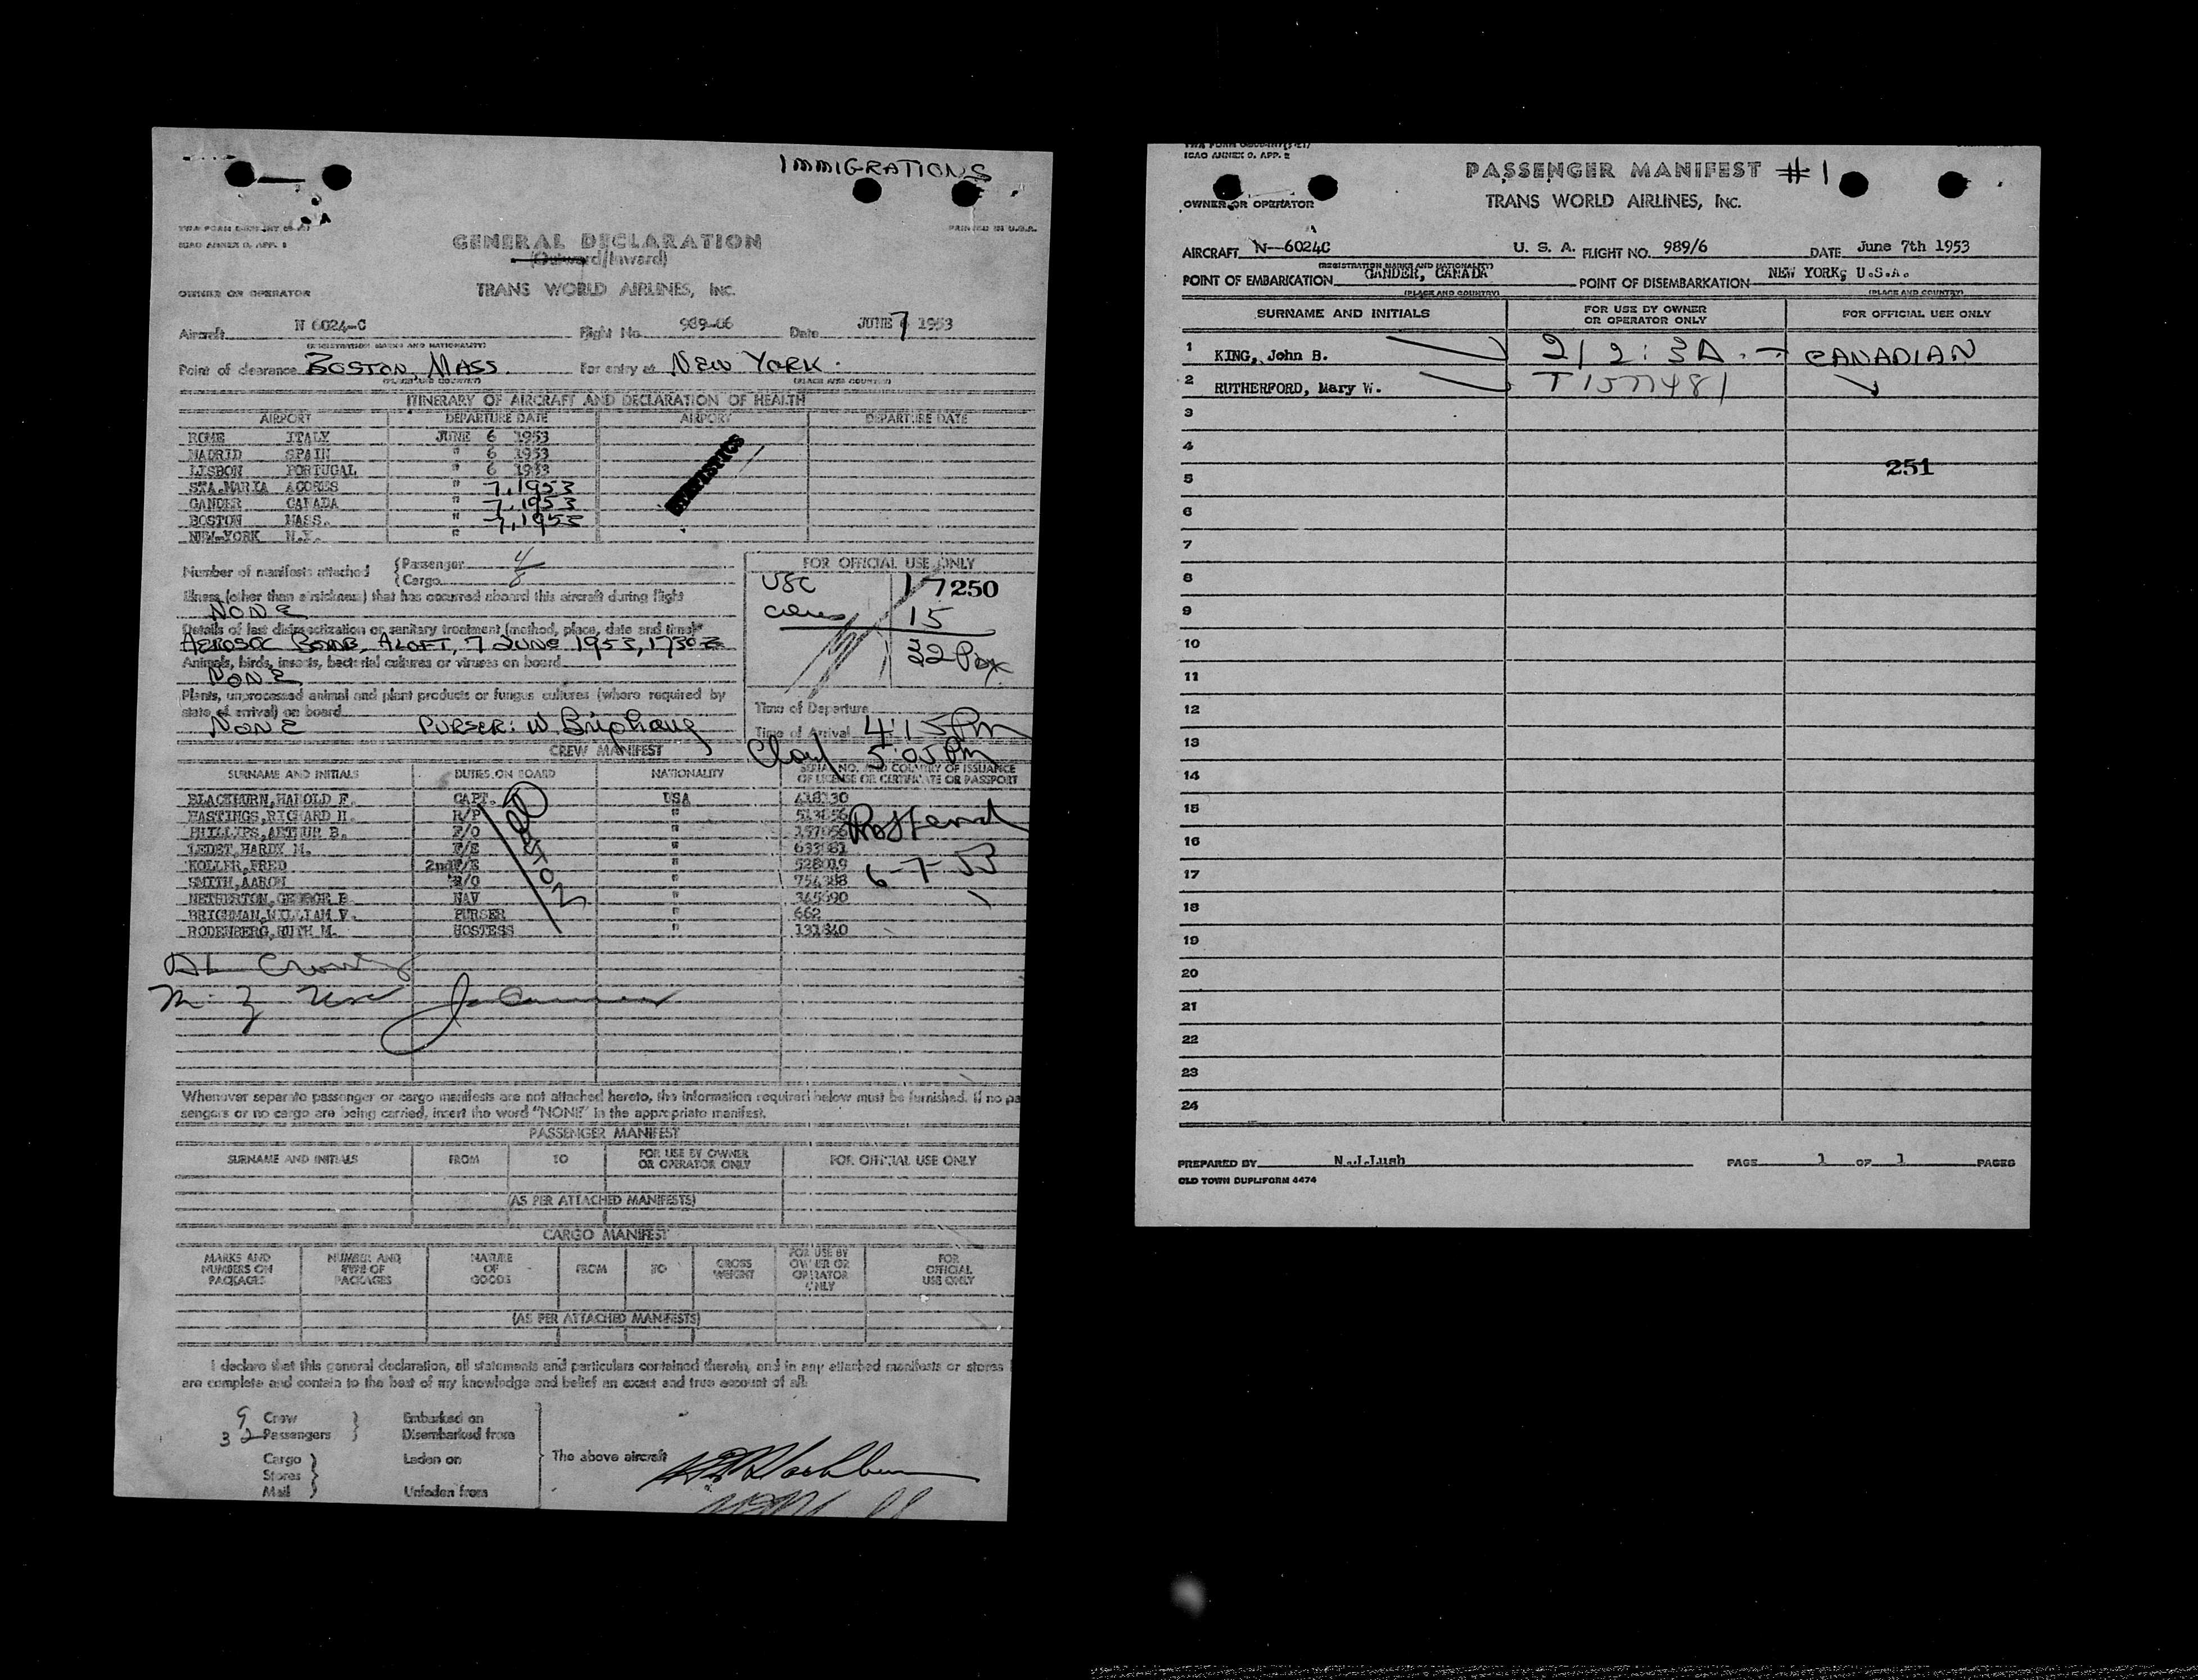 IMMIGRATIONS
ICAO ANNEX 9, APP. 1
PRINTED IN U.S.A.
GENERAL DECLARATION
(Outward/Inward)
OWNER OR OPERATOR
TRANS WORLD AIRLINES, INC.
Aircraft N 6024-C Flight No. 989-06 Date JUNE 7 1953
(REGISTRATION MARKS AND NATIONALITY)
Point of clearance BOSTON, MASS. For entry at NEW YORK.
(PLACE AND COUNTRY) (PLACE AND COUNTRY)
ITINERARY OF AIRCRAFT AND DECLARATION OF HEALTH
AIRPORT DEPARTURE DATE AIRPORT DEPARTURE DATE
ROME ITALY JUNE 6 1953
MADRID SPAIN " 6 1953
LISBON PORTUGAL " 6 1953
STA.MARIA ACORES " 7, 1953
GANDER CANADA " 7, 1953
BOSTON MASS. " 7, 1953
NEW-YORK N.Y. "
STATISTICS
Number of manifests attached {Passenger 4
{Cargo 8
Illness (other than airsickness) that has occurred aboard this aircraft during flight
NONE
Details of last disinsectization or sanitary treatment (method, place, date and time)
AEROSOL BOMB, ALOFT, 7 JUNE 1953, 1730Z
Animals, birds, insects, bacterial cultures or viruses on board
NONE
Plants, unprocessed animal and plant products or fungus cultures (where required by
state of arrival) on board
NONE PURSER: W. Brighman
FOR OFFICIAL USE ONLY
USC 17 250
15
32 Pax
Time of Departure
Time of Arrival 4:15 PM
5:05 PM
CREW MANIFEST
SURNAME AND INITIALS DUTIES ON BOARD NATIONALITY SERIAL NO. AND COUNTRY OF ISSUANCE
OF LICENSE OR CERTIFICATE OR PASSPORT
BLACKBURN, HAROLD F. CAPT. USA 418130
HASTINGS, RICHARD H. R/P "
PHILLIPS, ARTHUR B. F/O "
LEDET, HARDY M. F/E "
KOLLER, FRED 2nd F/E "
SMITH, AARON R/O "
NETHERTON, GEORGE B. NAV "
BRIGHMAN, WILLIAM V. PURSER " 662
RODENBERG, RUTH M. HOSTESS "
BOSTON
6-7-53
Whenever separate passenger or cargo manifests are not attached hereto, the information required below must be furnished. If no pa
sengers or no cargo are being carried, insert the word "NONE" in the appropriate manifest.
PASSENGER MANIFEST
SURNAME AND INITIALS FROM TO FOR USE BY OWNER
OR OPERATOR ONLY FOR OFFICIAL USE ONLY
(AS PER ATTACHED MANIFESTS)
CARGO MANIFEST
MARKS AND
NUMBERS ON
PACKAGES NUMBER AND
TYPE OF
PACKAGES NATURE
OF
GOODS FROM TO GROSS
WEIGHT FOR USE BY
OWNER OR
OPERATOR
ONLY FOR
OFFICIAL
USE ONLY
(AS PER ATTACHED MANIFESTS)
I declare that this general declaration, all statements and particulars contained therein, and in any attached manifests or stores
are complete and contain to the best of my knowledge and belief an exact and true account of all:
9 Crew } Embarked on
32 Passengers } Disembarked from
Cargo } Laden on The above aircraft
Stores }
Mail } Unladen from
ICAO ANNEX 9, APP. 2
PASSENGER MANIFEST #1
OWNER OR OPERATOR TRANS WORLD AIRLINES, INC.
AIRCRAFT N-6024C U. S. A. FLIGHT NO. 989/6 DATE June 7th 1953
(REGISTRATION MARKS AND NATIONALITY)
POINT OF EMBARKATION GANDER, CANADA POINT OF DISEMBARKATION NEW YORK, U.S.A.
(PLACE AND COUNTRY) (PLACE AND COUNTRY)
SURNAME AND INITIALS FOR USE BY OWNER
OR OPERATOR ONLY FOR OFFICIAL USE ONLY
1 KING, John B. 212:3A. - CANADIAN
2 RUTHERFORD, Mary W.
3
4
251
5
6
7
8
9
10
11
12
13
14
15
16
17
18
19
20
21
22
23
24
PREPARED BY N.J.Lush PAGE 1 OF 1 PAGES
OLD TOWN DUPLIFORM 4474